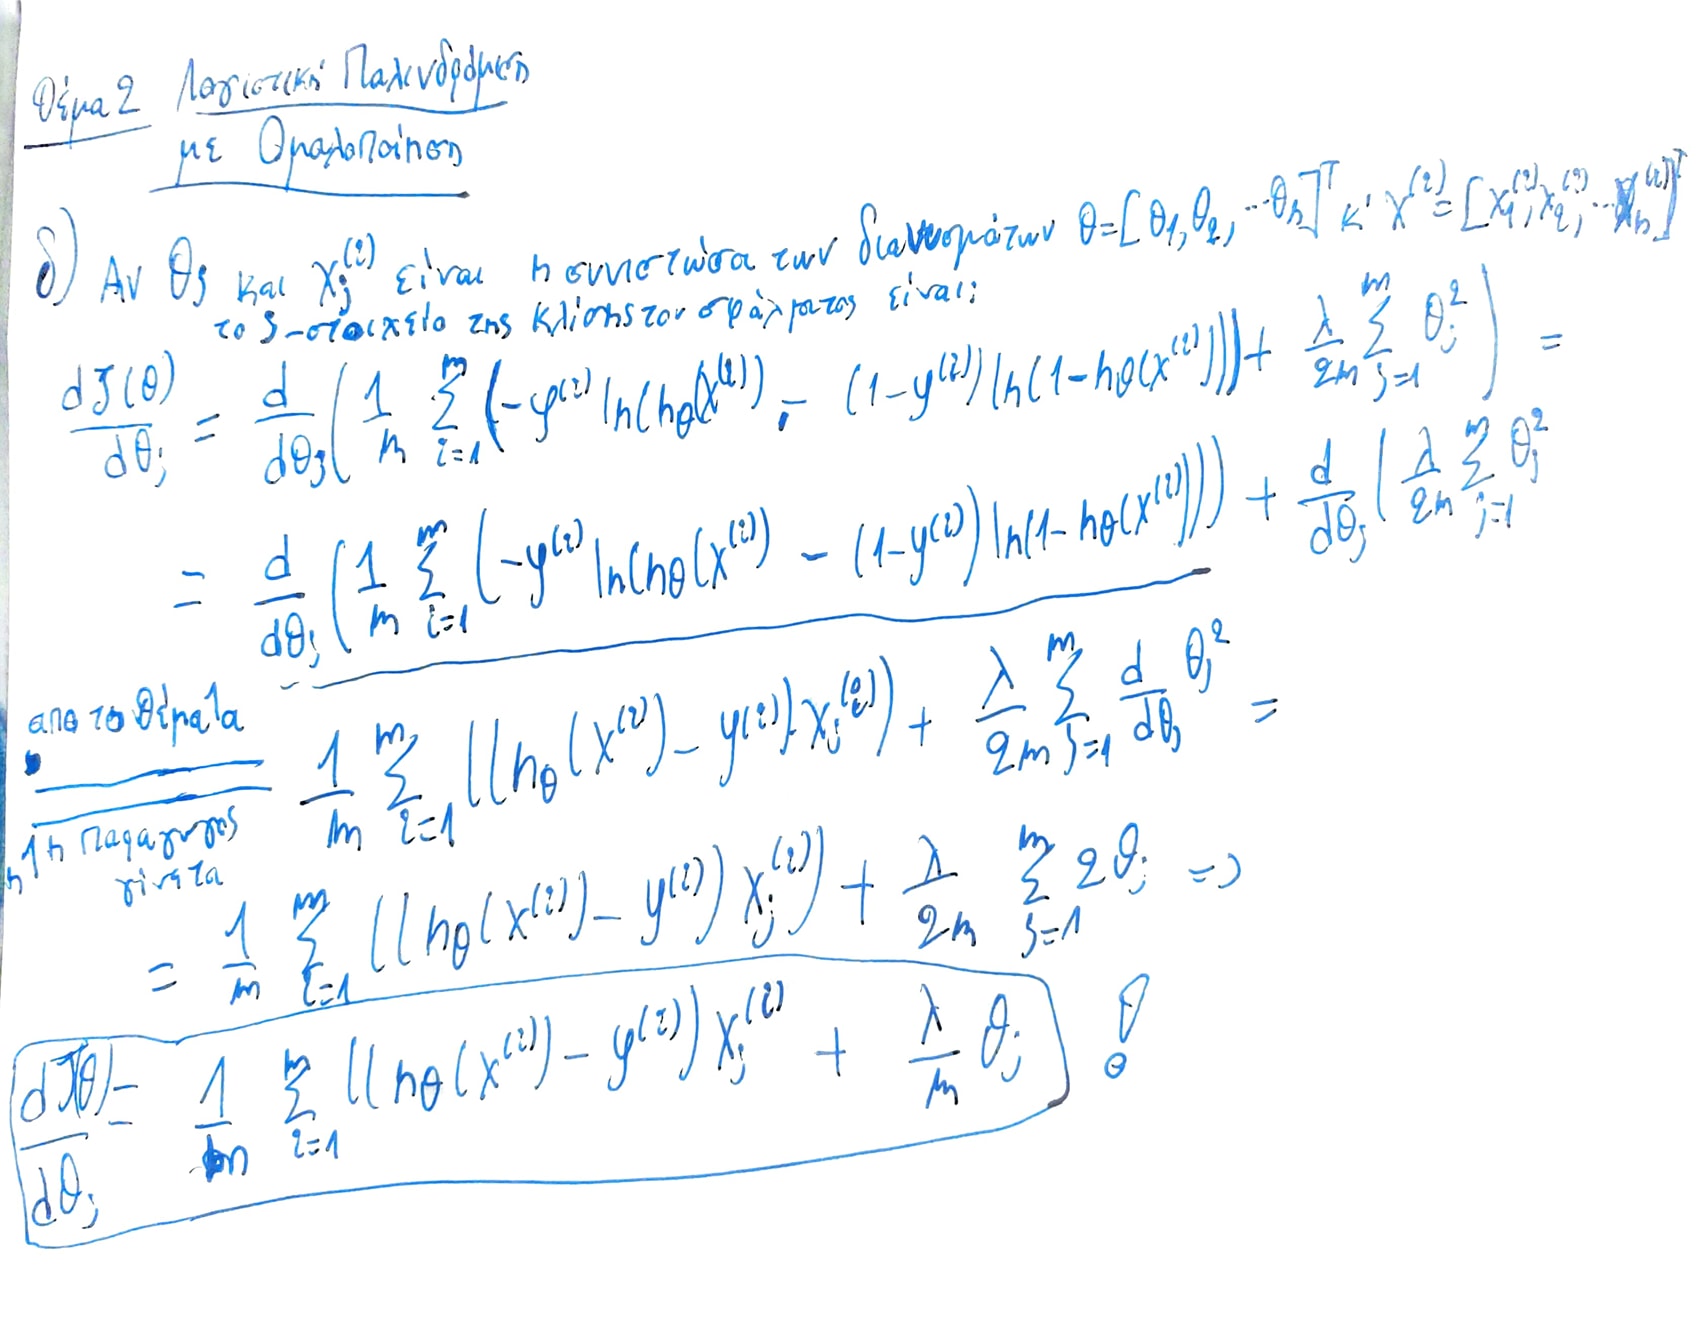 Θέμα 2 Λογιστική Παλινδρόμηση
με Ομαλοποίηση
δ) Αν θj και xj^(i) είναι η συνιστώσα των διανυσμάτων θ=[θ1,θ2,...θn]^T κ' x^(i)=[x1^(i),x2^(i),...xn^(i)]^T
το j-στοιχείο της κλίσης του σφάλματος είναι:
dJ(θ)/dθj = d/dθj (1/m Σ_{i=1}^{m} (-y^(i) ln(hθ(x^(i)) - (1-y^(i)) ln(1-hθ(x^(i)))) + λ/2m Σ_{j=1}^{m} θj^2) =
= d/dθj (1/m Σ_{i=1}^{m} (-y^(i) ln(hθ(x^(i)) - (1-y^(i)) ln(1-hθ(x^(i)))) + d/dθj (λ/2m Σ_{j=1}^{m} θj^2
απο το θέμα 1α
η 1η παραγωγος
γίνεται
1/m Σ_{i=1}^{m} ((hθ(x^(i)) - y^(i)) · xj^(i)) + λ/2m Σ_{j=1}^{m} d/dθj θj^2 =
= 1/m Σ_{i=1}^{m} ((hθ(x^(i)) - y^(i)) xj^(i)) + λ/2m Σ_{j=1}^{m} 2θj =>
dJ(θ)/dθj = 1/m Σ_{i=1}^{m} ((hθ(x^(i)) - y^(i)) xj^(i) + λ/m θj !